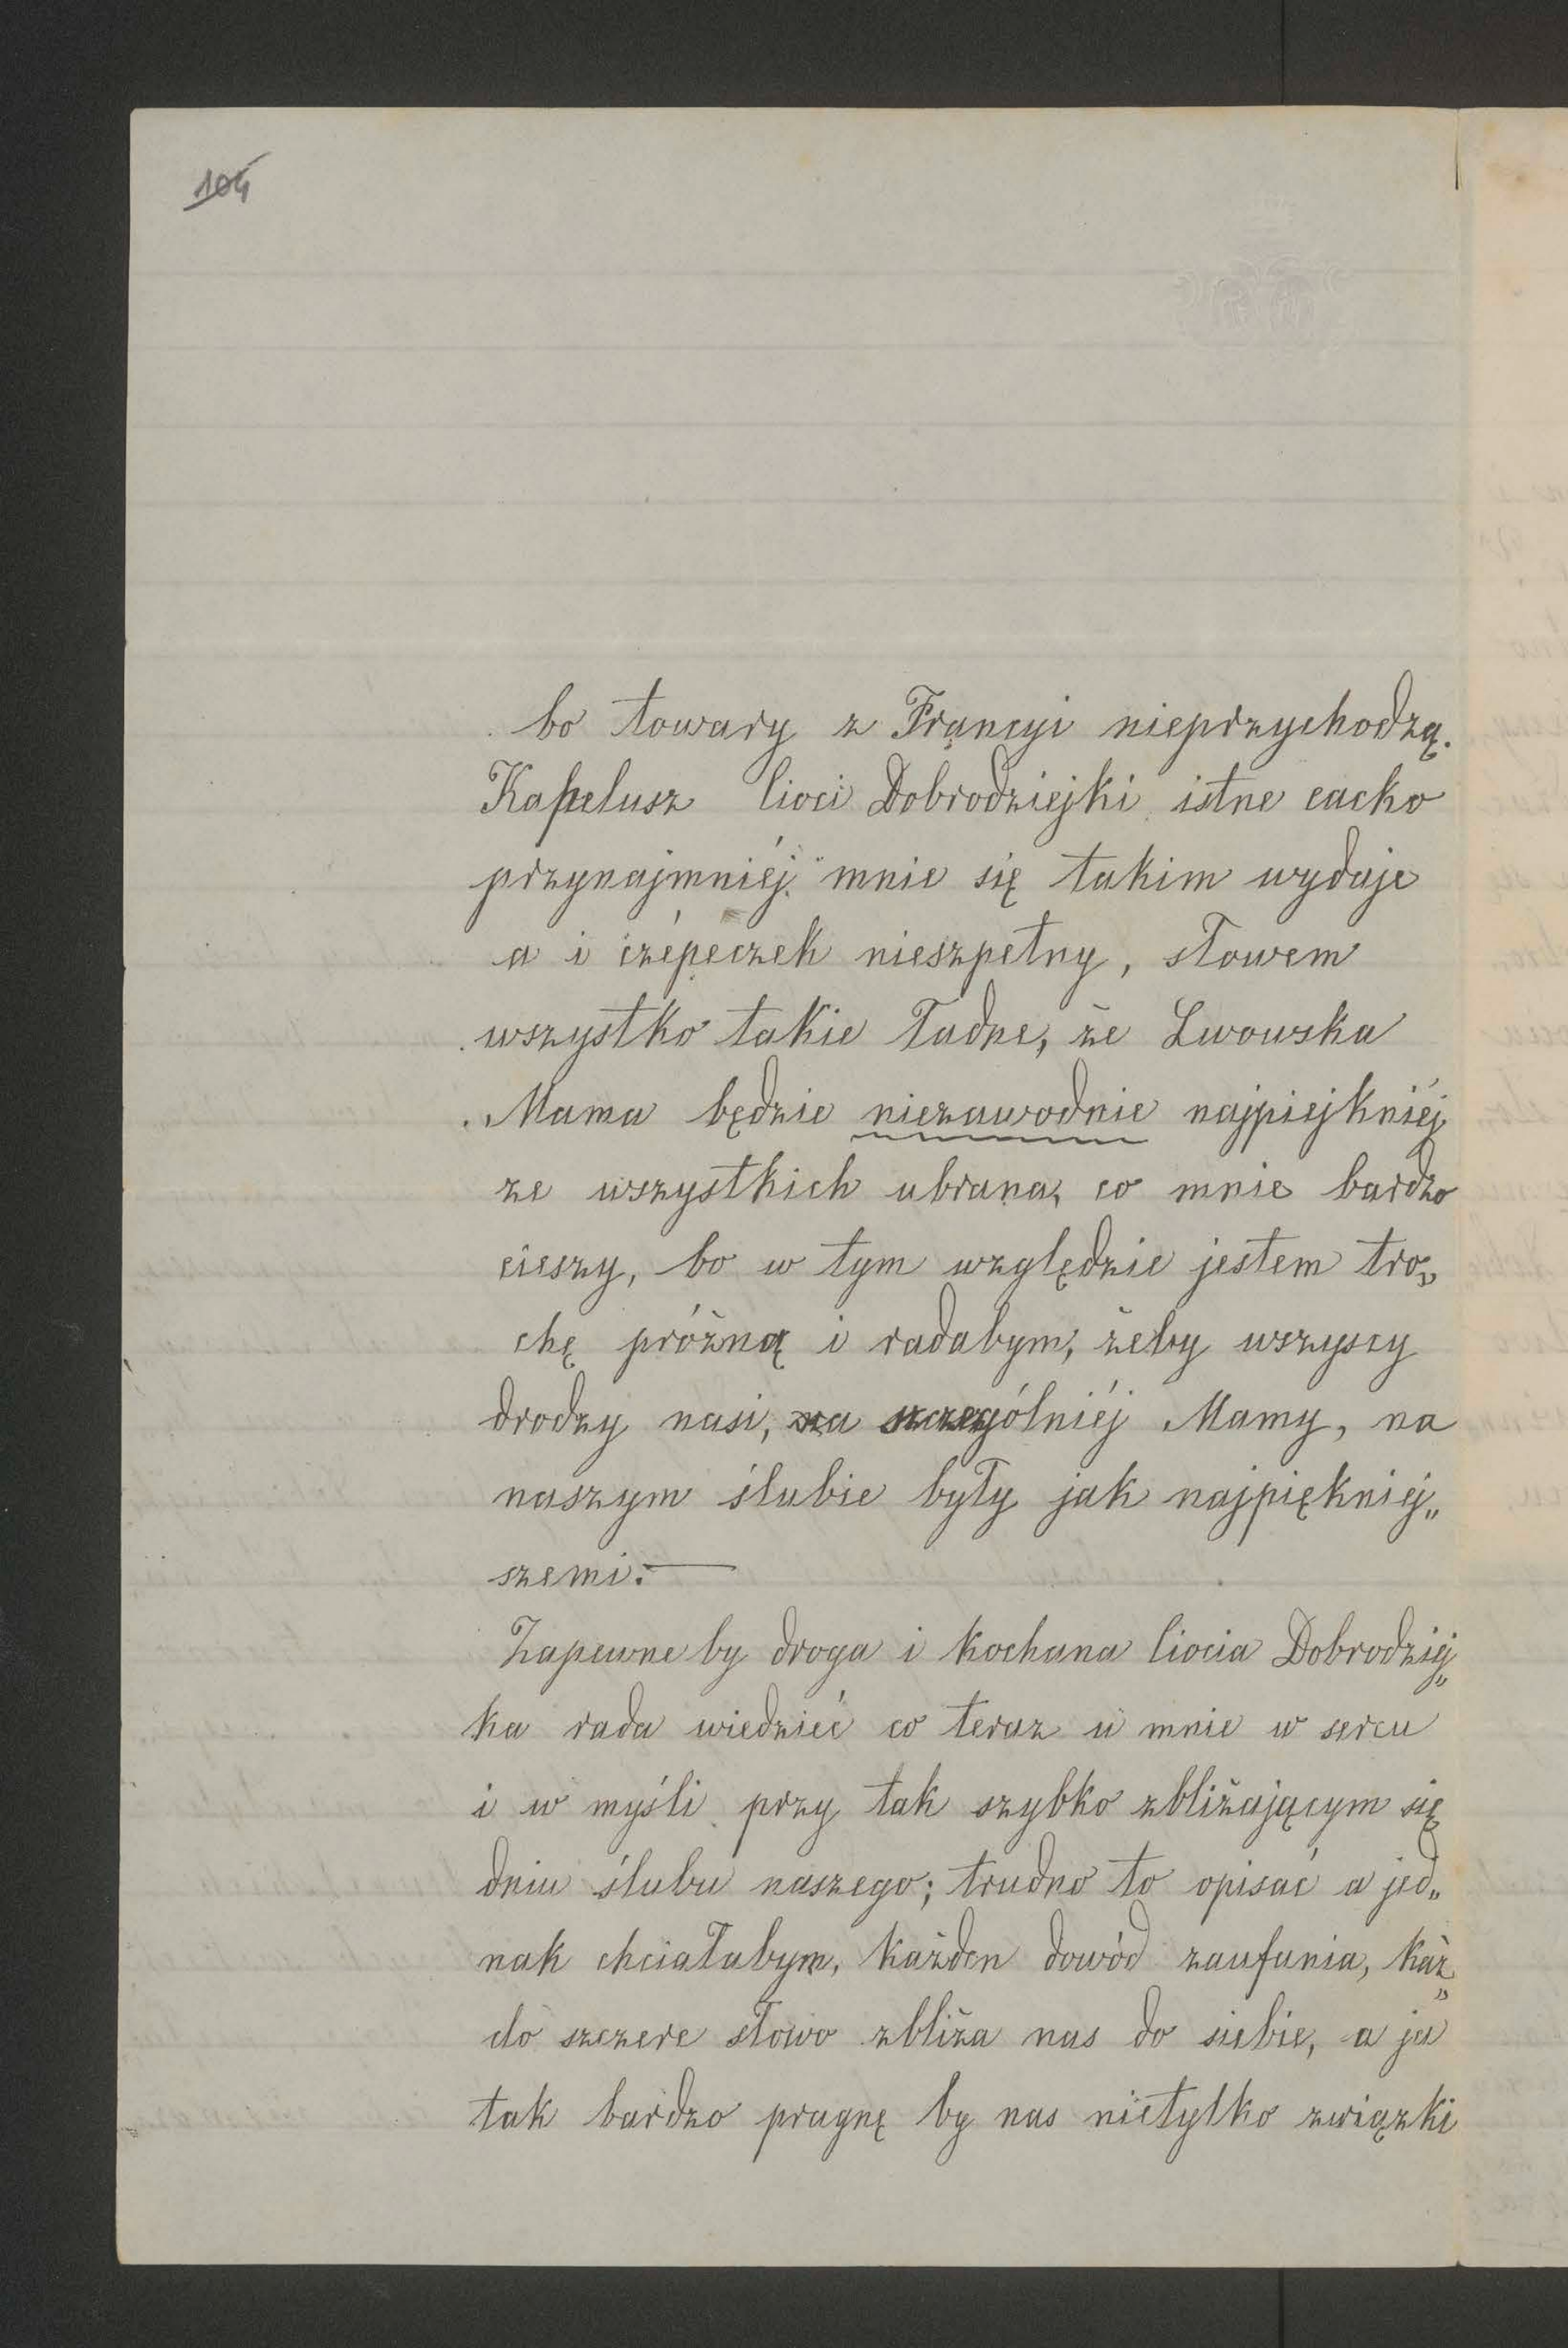 104
bo towary z Francyi nieprzychodzą.
Kapelusz Cioci Dobrodziejki istne cacko
przynajmniéj mnie się takim wydaje
a i czépeczek nieszpetny, słowem
wszystko takie ładne, że Lwowska
Mama będzie niezawodnie najpiejkniéj
ze wszystkich ubrana, co mnie bardzo
cieszy, bo w tym względzie jestem tro„
chę próżną i radabym, żeby wszyscy
drodzy nasi, a szczególniéj Mamy, na
naszym ślubie były jak najpiękniej„
szemi. —
Zapewne by droga i kochana Ciocia Dobrodziej„
ka rada wiedzieć co teraz u mnie w sercu
i w myśli przy tak szybko zbliżającym się
dniu ślubu naszego; trudno to opisać a jed„
nak chciałabym, każden dowód zaufania, każ„
do szczere słowo zbliża nas do siebie, a ja
tak bardzo pragnę by nas nietylko związki